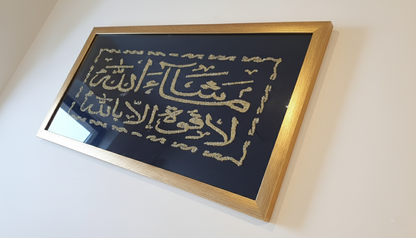 مَا شَآءَ اللّٰهُ
لا قوة إلا بالله